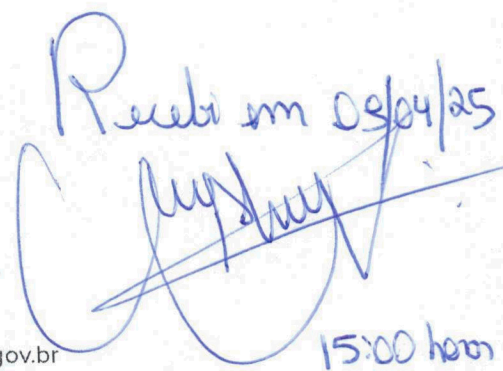 Recebi em 09/04/25
15:00 horas
gov.br